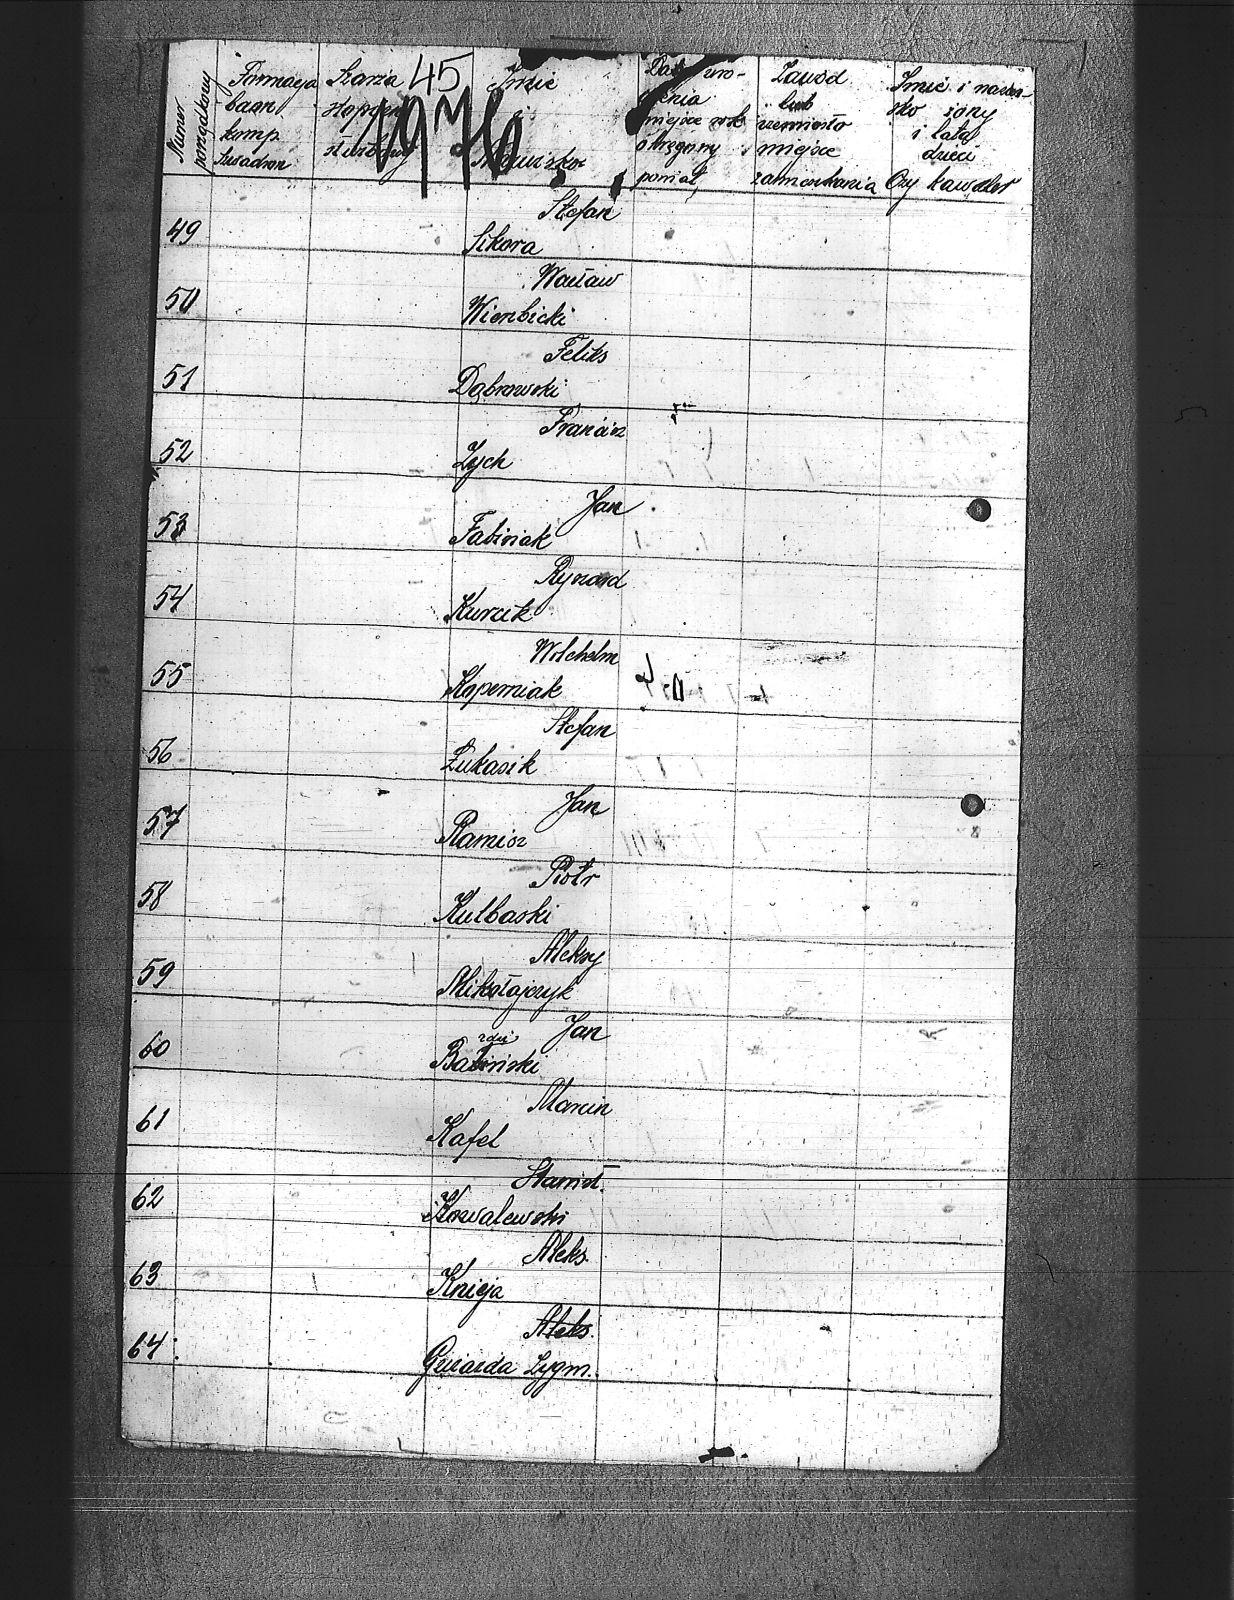 45
1976
Numer porządkowy
Formacja baon komp szwadron
Szarża stopień służbowy
Imię i Nazwisko
Data uro-
dzenia
miejsce rok
okręgowy
powiat
Zawód
lub
rzemiosło
miejsce
zamieszkania
Imię i nazwi-
sko żony
i lata
dzieci
Czy kawaler
Stefan
49 Sikora
Wacław
50 Wierzbicki
Feliks
51 Dąbrowski
Francisz
52 Zych
Jan
53 Fabiniak
Ryszard
54 Kurcik
Wilchelm
55 Koperniak
Stefan
56 Łukasik
Jan
57 Ramisz
Piotr
58 Kulbaski
Aleksy
59 Mikołajczyk
Jan
60 Baziński
Marcin
61 Kafel
Stanisł.
62 Kowalewski
Aleks.
63 Knieja
Aleks.
64 Gwiazda Zygm.